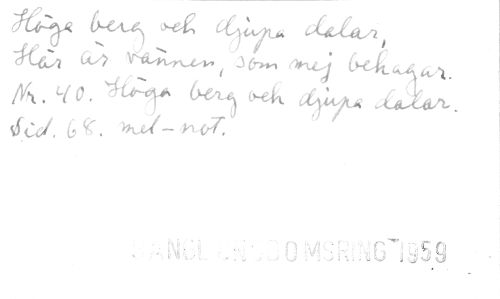 Höga berg och djupa dalar,
Här är vännen, som mej behagar.
Nr. 40. Höga berg och djupa dalar.
Sid. 68. mel-not.
UNGDOMSRING 1959